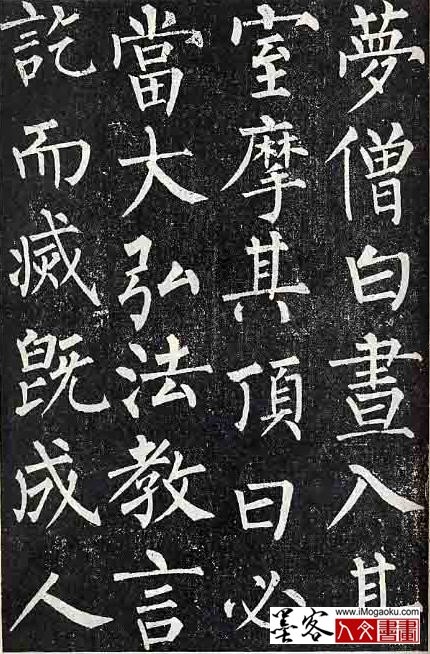 夢僧白晝入其
室摩其頂曰必
當大弘法教言
訖而滅既成人
墨客
www.iMogaoku.com
人文書畫